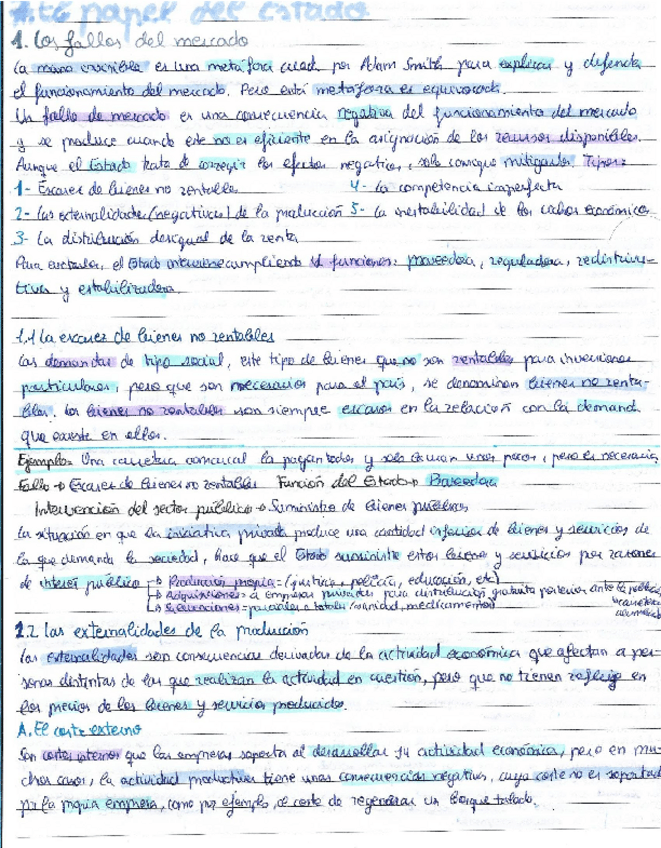 1. El papel del estado
1. Los fallos del mercado
La mano invisible es una metáfora creada por Adam Smith para explicar y defender
el funcionamiento del mercado. Pero esta metáfora es equivocada.
Un fallo de mercado es una consecuencia negativa del funcionamiento del mercado
y se produce cuando este no es eficiente en la asignación de los recursos disponibles.
Aunque el Estado trata de corregir los efectos negativos, solo consigue mitigarlos. Tipos:
1- Escasez de bienes no rentables 4- La competencia imperfecta
2- Las externalidades (negativas) de la producción 5- La inestabilidad de los ciclos económicos
3- La distribución desigual de la renta
Para evitarlos, el Estado interviene cumpliendo funciones: proveedora, reguladora, redistribu-
tiva y estabilizadora.
1.1 La escasez de bienes no rentables
Las demandas de tipo social, este tipo de bienes que no son rentables para inversiones
particulares, pero que son necesarios para el país, se denominan bienes no renta-
bles. Los bienes no rentables son siempre escasos en la relación con la demanda
que existe en ellos.
Ejemplo: Una carretera comarcal la pagan todos y solo la usan unos pocos, pero es necesaria
Fallo → Escasez de bienes no rentables Función del Estado → Proveedora
Intervención del sector público → Suministro de bienes públicos
La situación en que la iniciativa privada produce una cantidad inferior de bienes y servicios de
la que demanda la sociedad, hace que el Estado suministre estos bienes y servicios por razones
de interés público → Producción propia = (justicia, policía, educación, etc)
→ Adquisiciones = a empresas privadas para distribución gratuita posterior
→ Subvenciones = parciales o totales (sanidad, medicamentos)
1.2 Las externalidades de la producción
Las externalidades son consecuencias derivadas de la actividad económica que afectan a per-
sonas distintas de las que realizan la actividad en cuestión, pero que no tienen reflejo en
los precios de los bienes y servicios producidos.
A. El coste externo
Son costes internos que las empresas soporta al desarrollar su actividad económica, pero en mu-
chos casos, la actividad productiva tiene unas consecuencias negativas, cuyo coste no es soportado
por la propia empresa, como por ejemplo, el coste de regenerar un bosque talado.